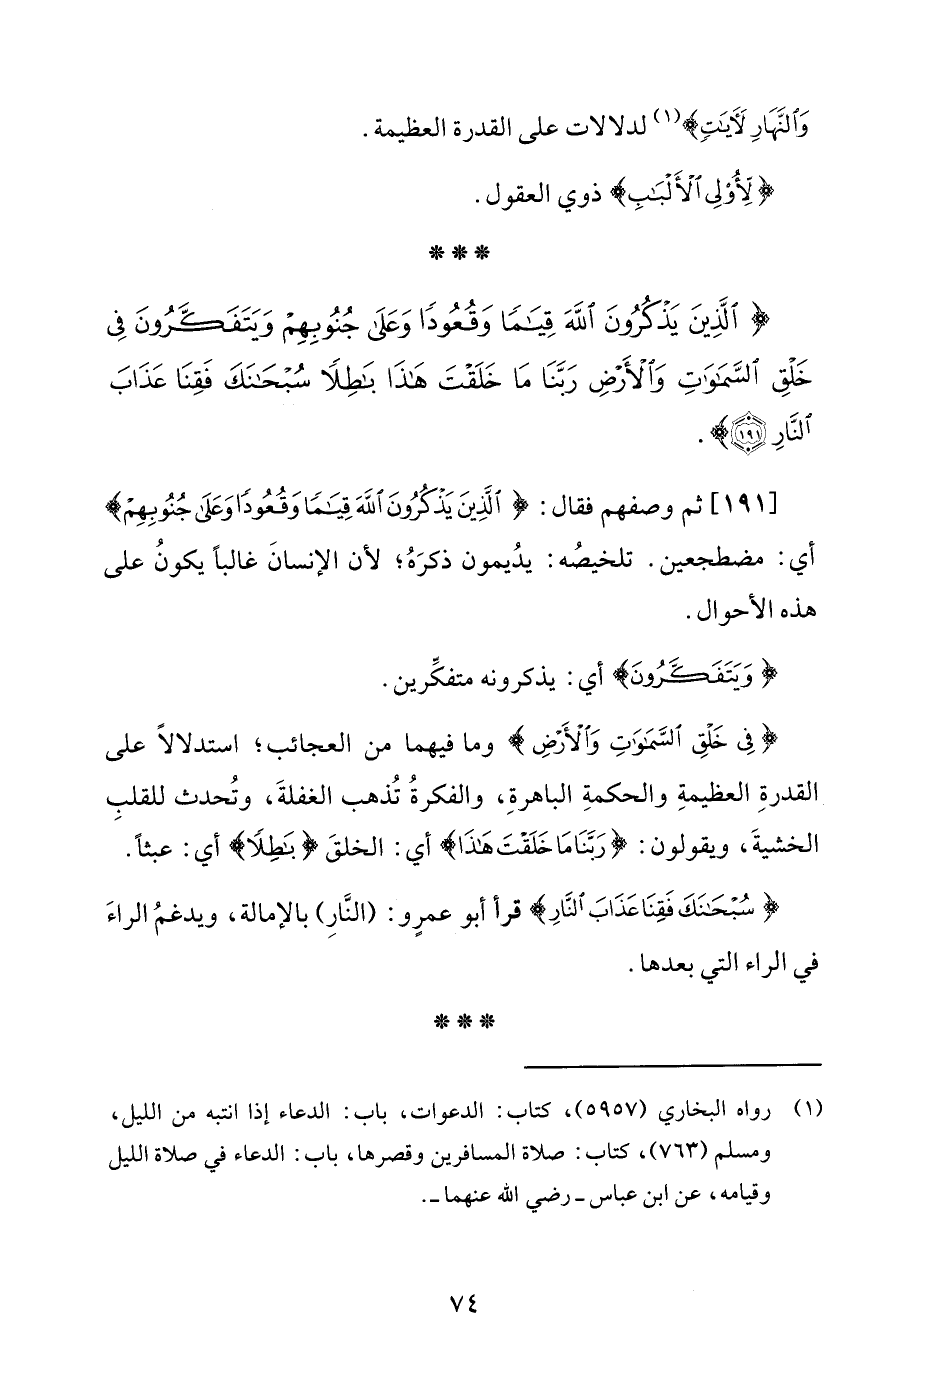 وَٱلنَّهَارِ لَأٓيَٰتٍ﴾(١) لدلالات على القدرة العظيمة .
﴿لِّأُوْلِى ٱلْأَلْبَٰبِ﴾ ذوي العقول .
* * *
﴿ ٱلَّذِينَ يَذْكُرُونَ ٱللَّهَ قِيَٰمًا وَقُعُودًا وَعَلَىٰ جُنُوبِهِمْ وَيَتَفَكَّرُونَ فِى
خَلْقِ ٱلسَّمَٰوَٰتِ وَٱلْأَرْضِ رَبَّنَا مَا خَلَقْتَ هَٰذَا بَٰطِلًا سُبْحَٰنَكَ فَقِنَا عَذَابَ
ٱلنَّارِ ١٩١﴾ .
[١٩١] ثم وصفهم فقال : ﴿ ٱلَّذِينَ يَذْكُرُونَ ٱللَّهَ قِيَٰمًا وَقُعُودًا وَعَلَىٰ جُنُوبِهِمْ﴾
أي : مضطجعين . تلخيصُه : يدُيمون ذكرَهُ؛ لأن الإنسانَ غالباً يكونُ على
هذه الأحوال .
﴿ وَيَتَفَكَّرُونَ﴾ أي : يذكرونه متفكِّرين .
﴿ فِى خَلْقِ ٱلسَّمَٰوَٰتِ وَٱلْأَرْضِ ﴾ وما فيهما من العجائب؛ استدلالاً على
القدرةِ العظيمةِ والحكمةِ الباهرةِ، والفكرةُ تُذهب الغفلةَ، وتُحدث للقلبِ
الخشيةَ، ويقولون : ﴿رَبَّنَا مَا خَلَقْتَ هَٰذَا﴾ أي : الخلقَ ﴿بَٰطِلًا﴾ أي : عبثاً .
﴿ سُبْحَٰنَكَ فَقِنَا عَذَابَ ٱلنَّارِ﴾ قرأ أبو عمرٍو : (النَّارِ) بالإمالة، ويدغمُ الراءَ
في الراء التي بعدها .
* * *
(١) رواه البخاري (٥٩٥٧)، كتاب : الدعوات، باب : الدعاء إذا انتبه من الليل،
ومسلم (٧٦٣)، كتاب : صلاة المسافرين وقصرها، باب : الدعاء في صلاة الليل
وقيامه، عن ابن عباس ـ رضي الله عنهما ـ .
٧٤